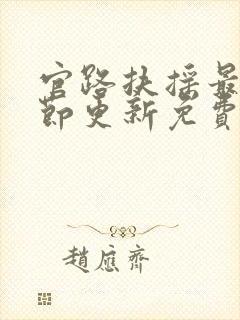 官路扶摇最
节更新免费
赵应齐